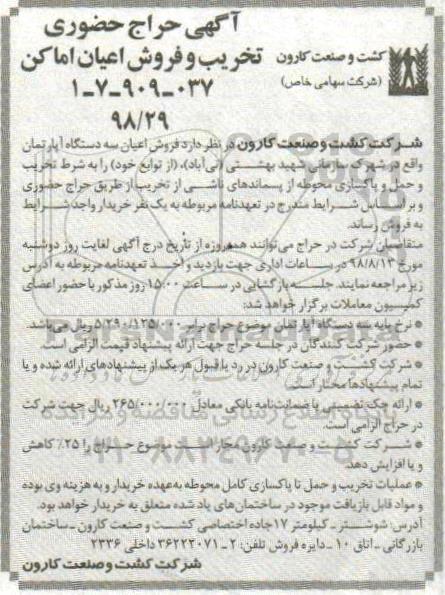 آگهی حراج حضوری
تخریب و فروش اعیان اماکن
کشت و صنعت کارون
(شرکت سهامی خاص)
۱-۷-۹۰۹-۰۳۷
۹۸/۲۹
شرکت کشت و صنعت کارون در نظر دارد فروش اعیان سه دستگاه آپارتمان
واقع در شهرک سازمانی شهید بهشتی (بی‌آباد)، (از توابع خود) را به شرط تخریب
و حمل و پاکسازی محوطه از پسماندهای ناشی از تخریب از طریق حراج حضوری
و بر اساس شرایط مندرج در تعهدنامه مربوطه به یک نفر خریدار واجد شرایط
به فروش رساند.
متقاضیان شرکت در حراج می‌توانند همه‌روزه از تاریخ درج آگهی لغایت روز دوشنبه
مورخ ۹۸/۸/۱۳ در ساعات اداری جهت بازدید و اخذ تعهدنامه مربوطه به آدرس
زیر مراجعه نمایند. جلسه بازگشایی در ساعت ۱۵:۰۰ روز مذکور با حضور اعضای
کمیسیون معاملات برگزار خواهد شد:
* نرخ پایه سه دستگاه آپارتمان موضوع حراج برابر ۵/۲۹۰/۱۲۵/۰۰۰ ریال می‌باشد.
* حضور شرکت کنندگان در جلسه حراج جهت ارائه پیشنهاد قیمت الزامی است.
* شرکت کشت و صنعت کارون در رد یا قبول هر یک از پیشنهادهای ارائه شده و یا
تمام پیشنهادها مختار است.
* ارائه چک تضمینی یا ضمانت‌نامه بانکی معادل ۲۶۵/۰۰۰/۰۰۰ ریال جهت شرکت
در حراج الزامی است.
* شرکت کشت و صنعت کارون مجاز است موضوع حراج را ۲۵٪ کاهش
و یا افزایش دهد.
* عملیات تخریب و حمل تا پاکسازی کامل محوطه به‌عهده خریدار و به هزینه وی بوده
و مواد قابل بازیافت موجود در ساختمان‌های یاد شده متعلق به خریدار خواهد بود.
آدرس: شوشتر ـ کیلومتر ۱۷ جاده اختصاصی کشت و صنعت کارون ـ ساختمان
بازرگانی ـ اتاق ۱۰ ـ دایره فروش تلفن: ۲ ـ ۳۶۲۲۲۰۷۱ داخلی ۲۳۳۶
شرکت کشت و صنعت کارون
۰۲۱-۸۸۳۴۹۶۷۰-۵